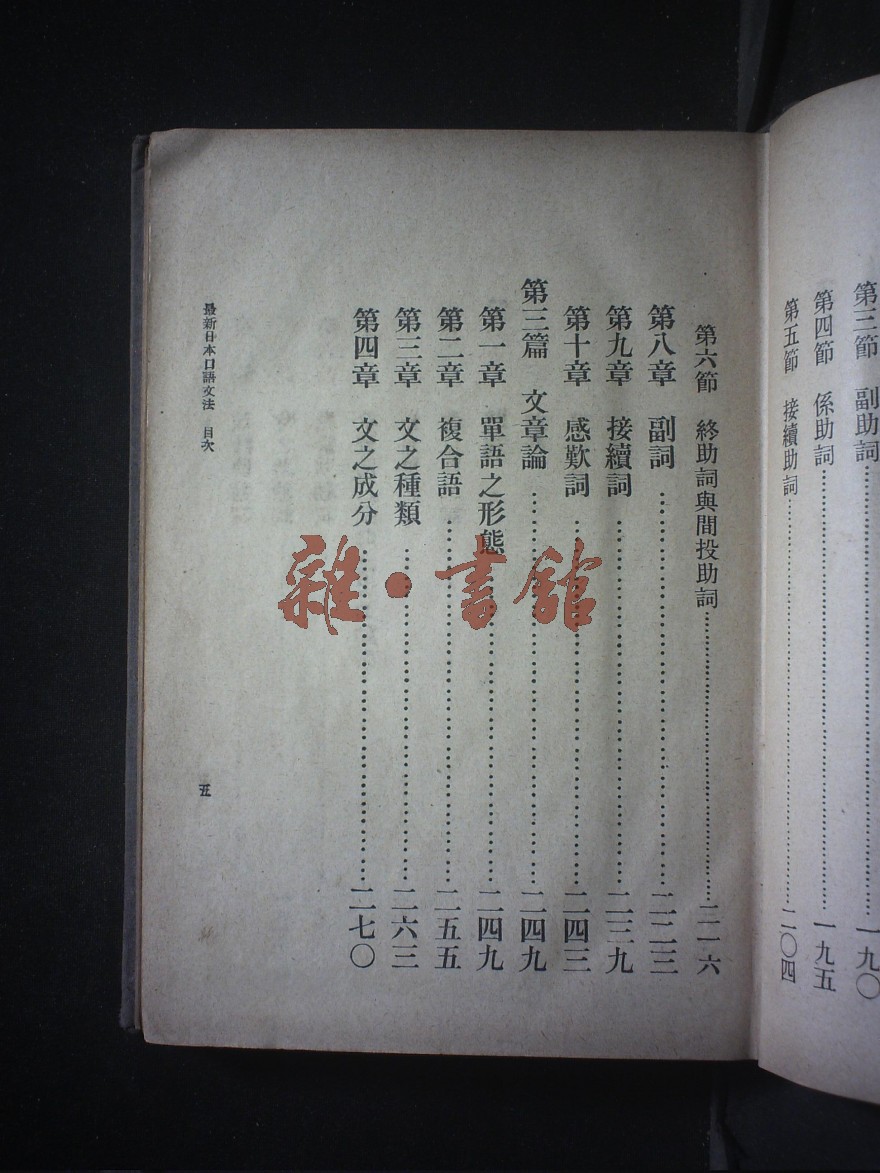 第三節 副助詞……一九〇
第四節 係助詞……一九五
第五節 接續助詞……二〇四
第六節 終助詞與間投助詞……二一六
第八章 副詞……二二三
第九章 接續詞……二三九
第十章 感歎詞……二四三
第三篇 文章論……二四九
第一章 單語之形態……二四九
第二章 複合語……二五五
第三章 文之種類……二六三
第四章 文之成分……二七〇
最新日本口語文法 目次
五
雜·書館